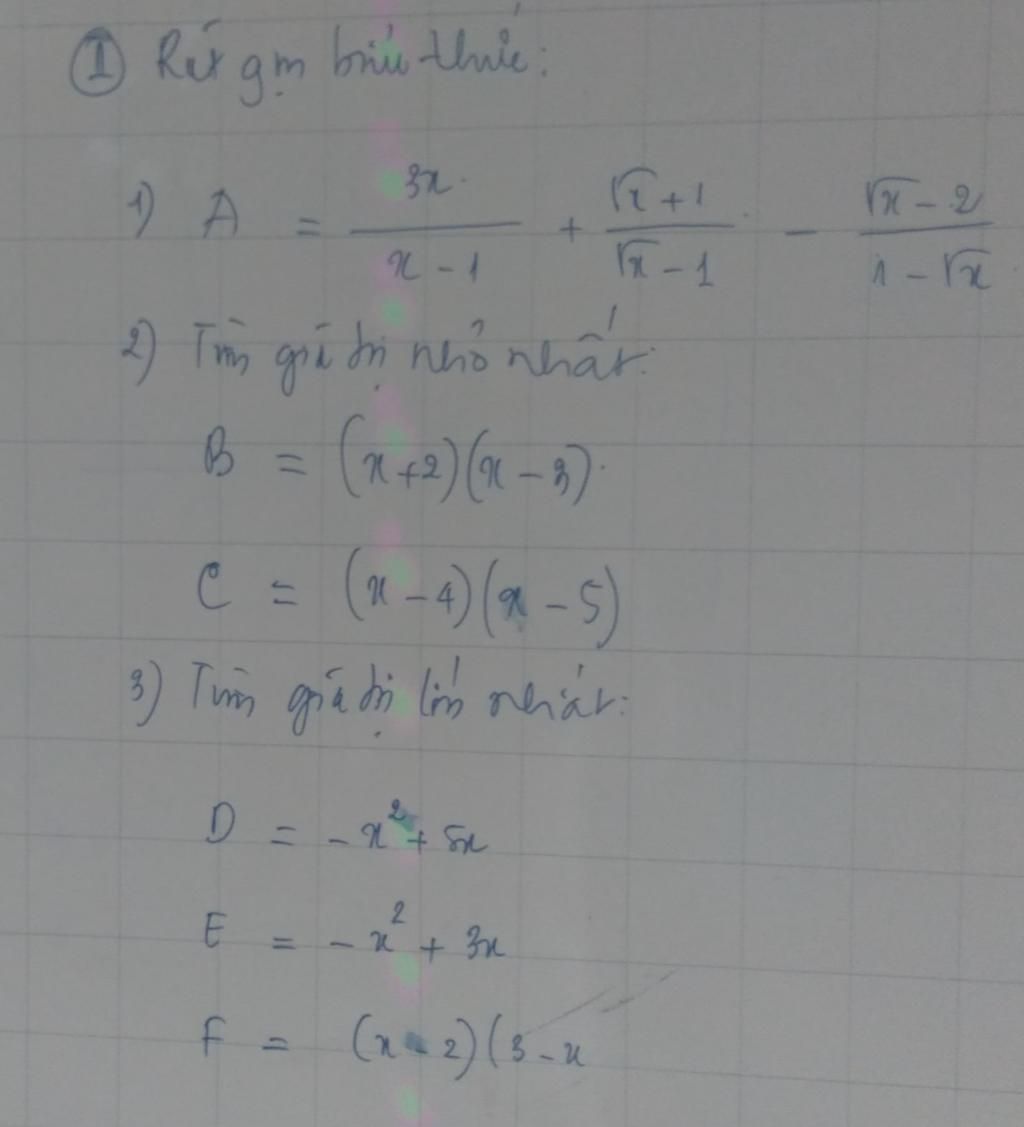 ① Rút gọn biểu thức:
1) A = 3x / (x - 1) + (√x + 1) / (√x - 1) - (√x - 2) / (1 - √x)
2) Tìm giá trị nhỏ nhất:
B = (x+2)(x - 3)
C = (x - 4)(x - 5)
3) Tìm giá trị lớn nhất:
D = - x² + 5x
E = - x² + 3x
F = (x - 2)(3 - x